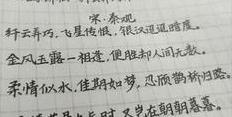 宋·秦观
纤云弄巧,飞星传恨,银汉迢迢暗度。
金风玉露一相逢,便胜却人间无数。
柔情似水,佳期如梦,忍顾鹊桥归路。
时,又岂在朝朝暮暮。